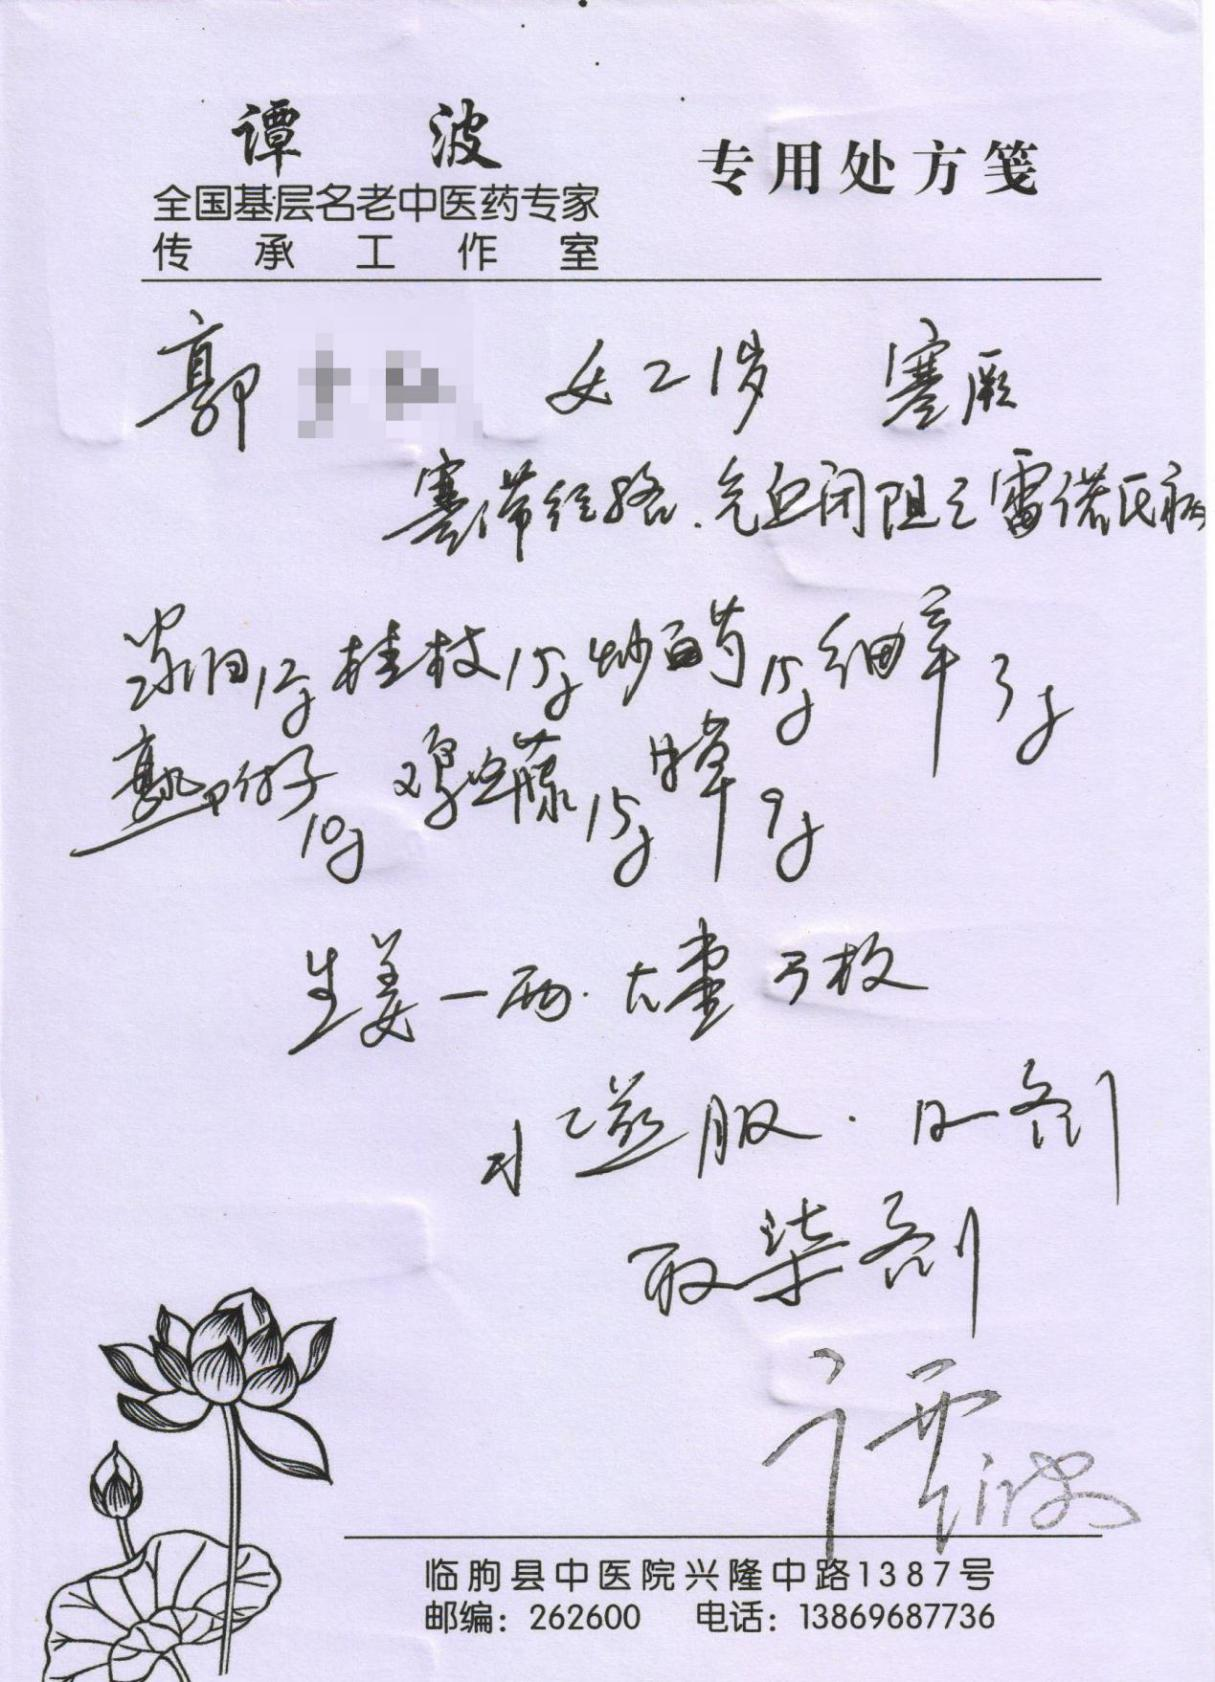 谭波 专用处方笺
全国基层名老中医药专家
传承工作室
郭 女 21岁 寒厥
寒滞经络、气血闭阻之雷诺氏病
当归12g 桂枝15g 炒白芍15g 细辛3g
熟附子10g 鸡血藤15g 甘草9g
生姜一两、大枣3枚
水煎服. 日一剂
取柒剂
谭波
临朐县中医院兴隆中路1387号
邮编：262600 电话：13869687736